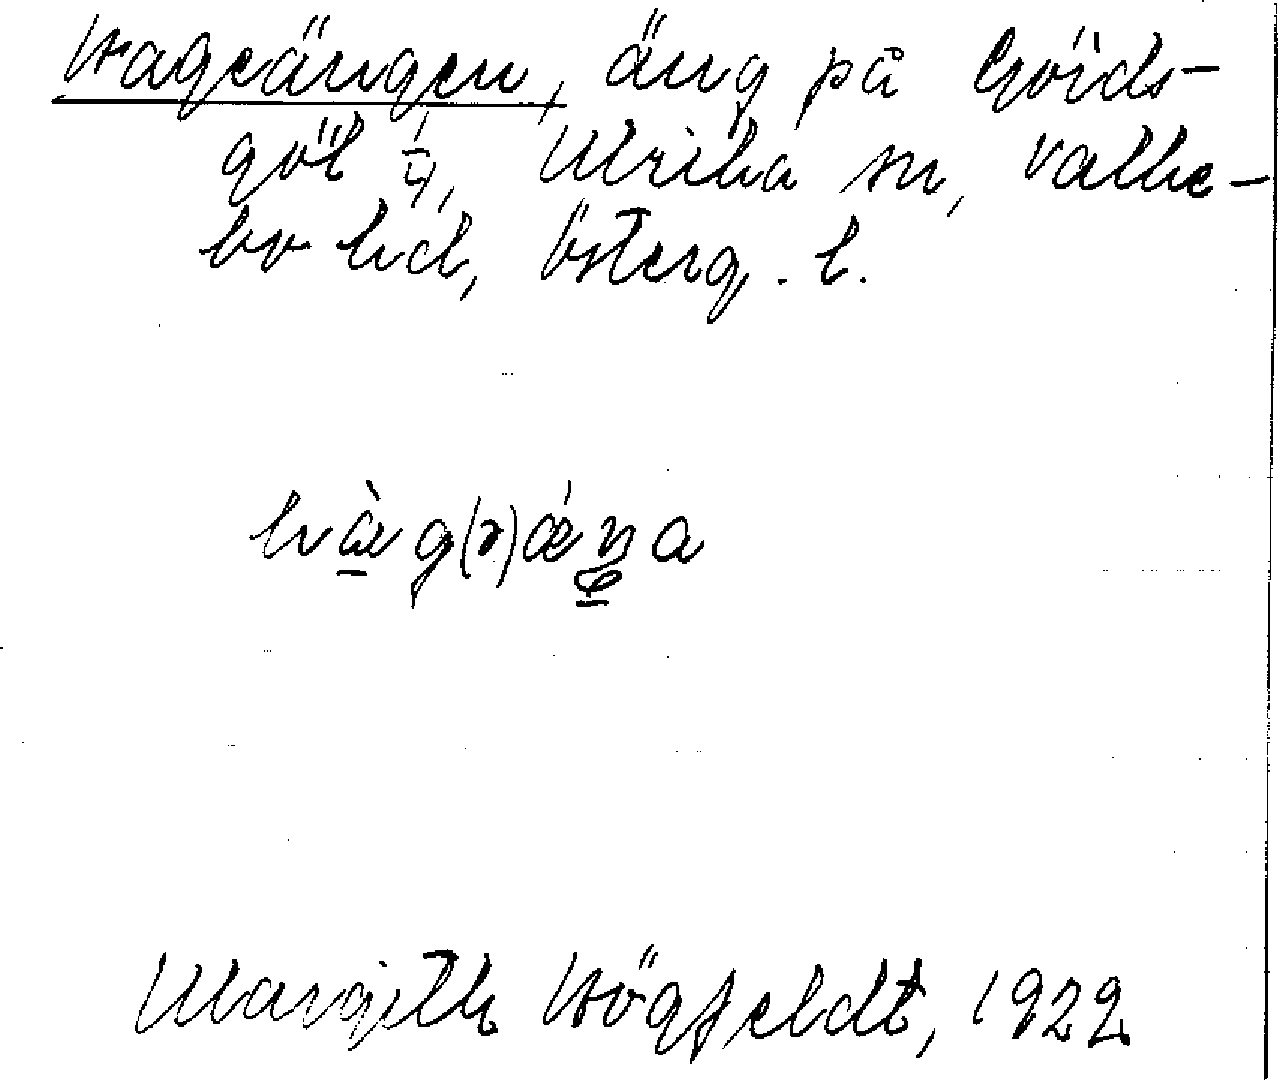 Hageängen, äng på Göids-
göl 1/4, Ulrika sn, Valke-
bo hd, Österg. l.
Margith Högfeldt, 1922